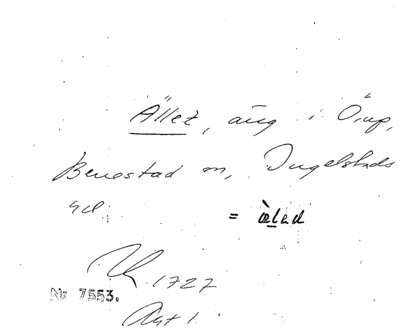 Ället, äng i Örup,
Benestad sn, Ingelstads
hd
= èled
1727
Nr 7553.
Akt 1.